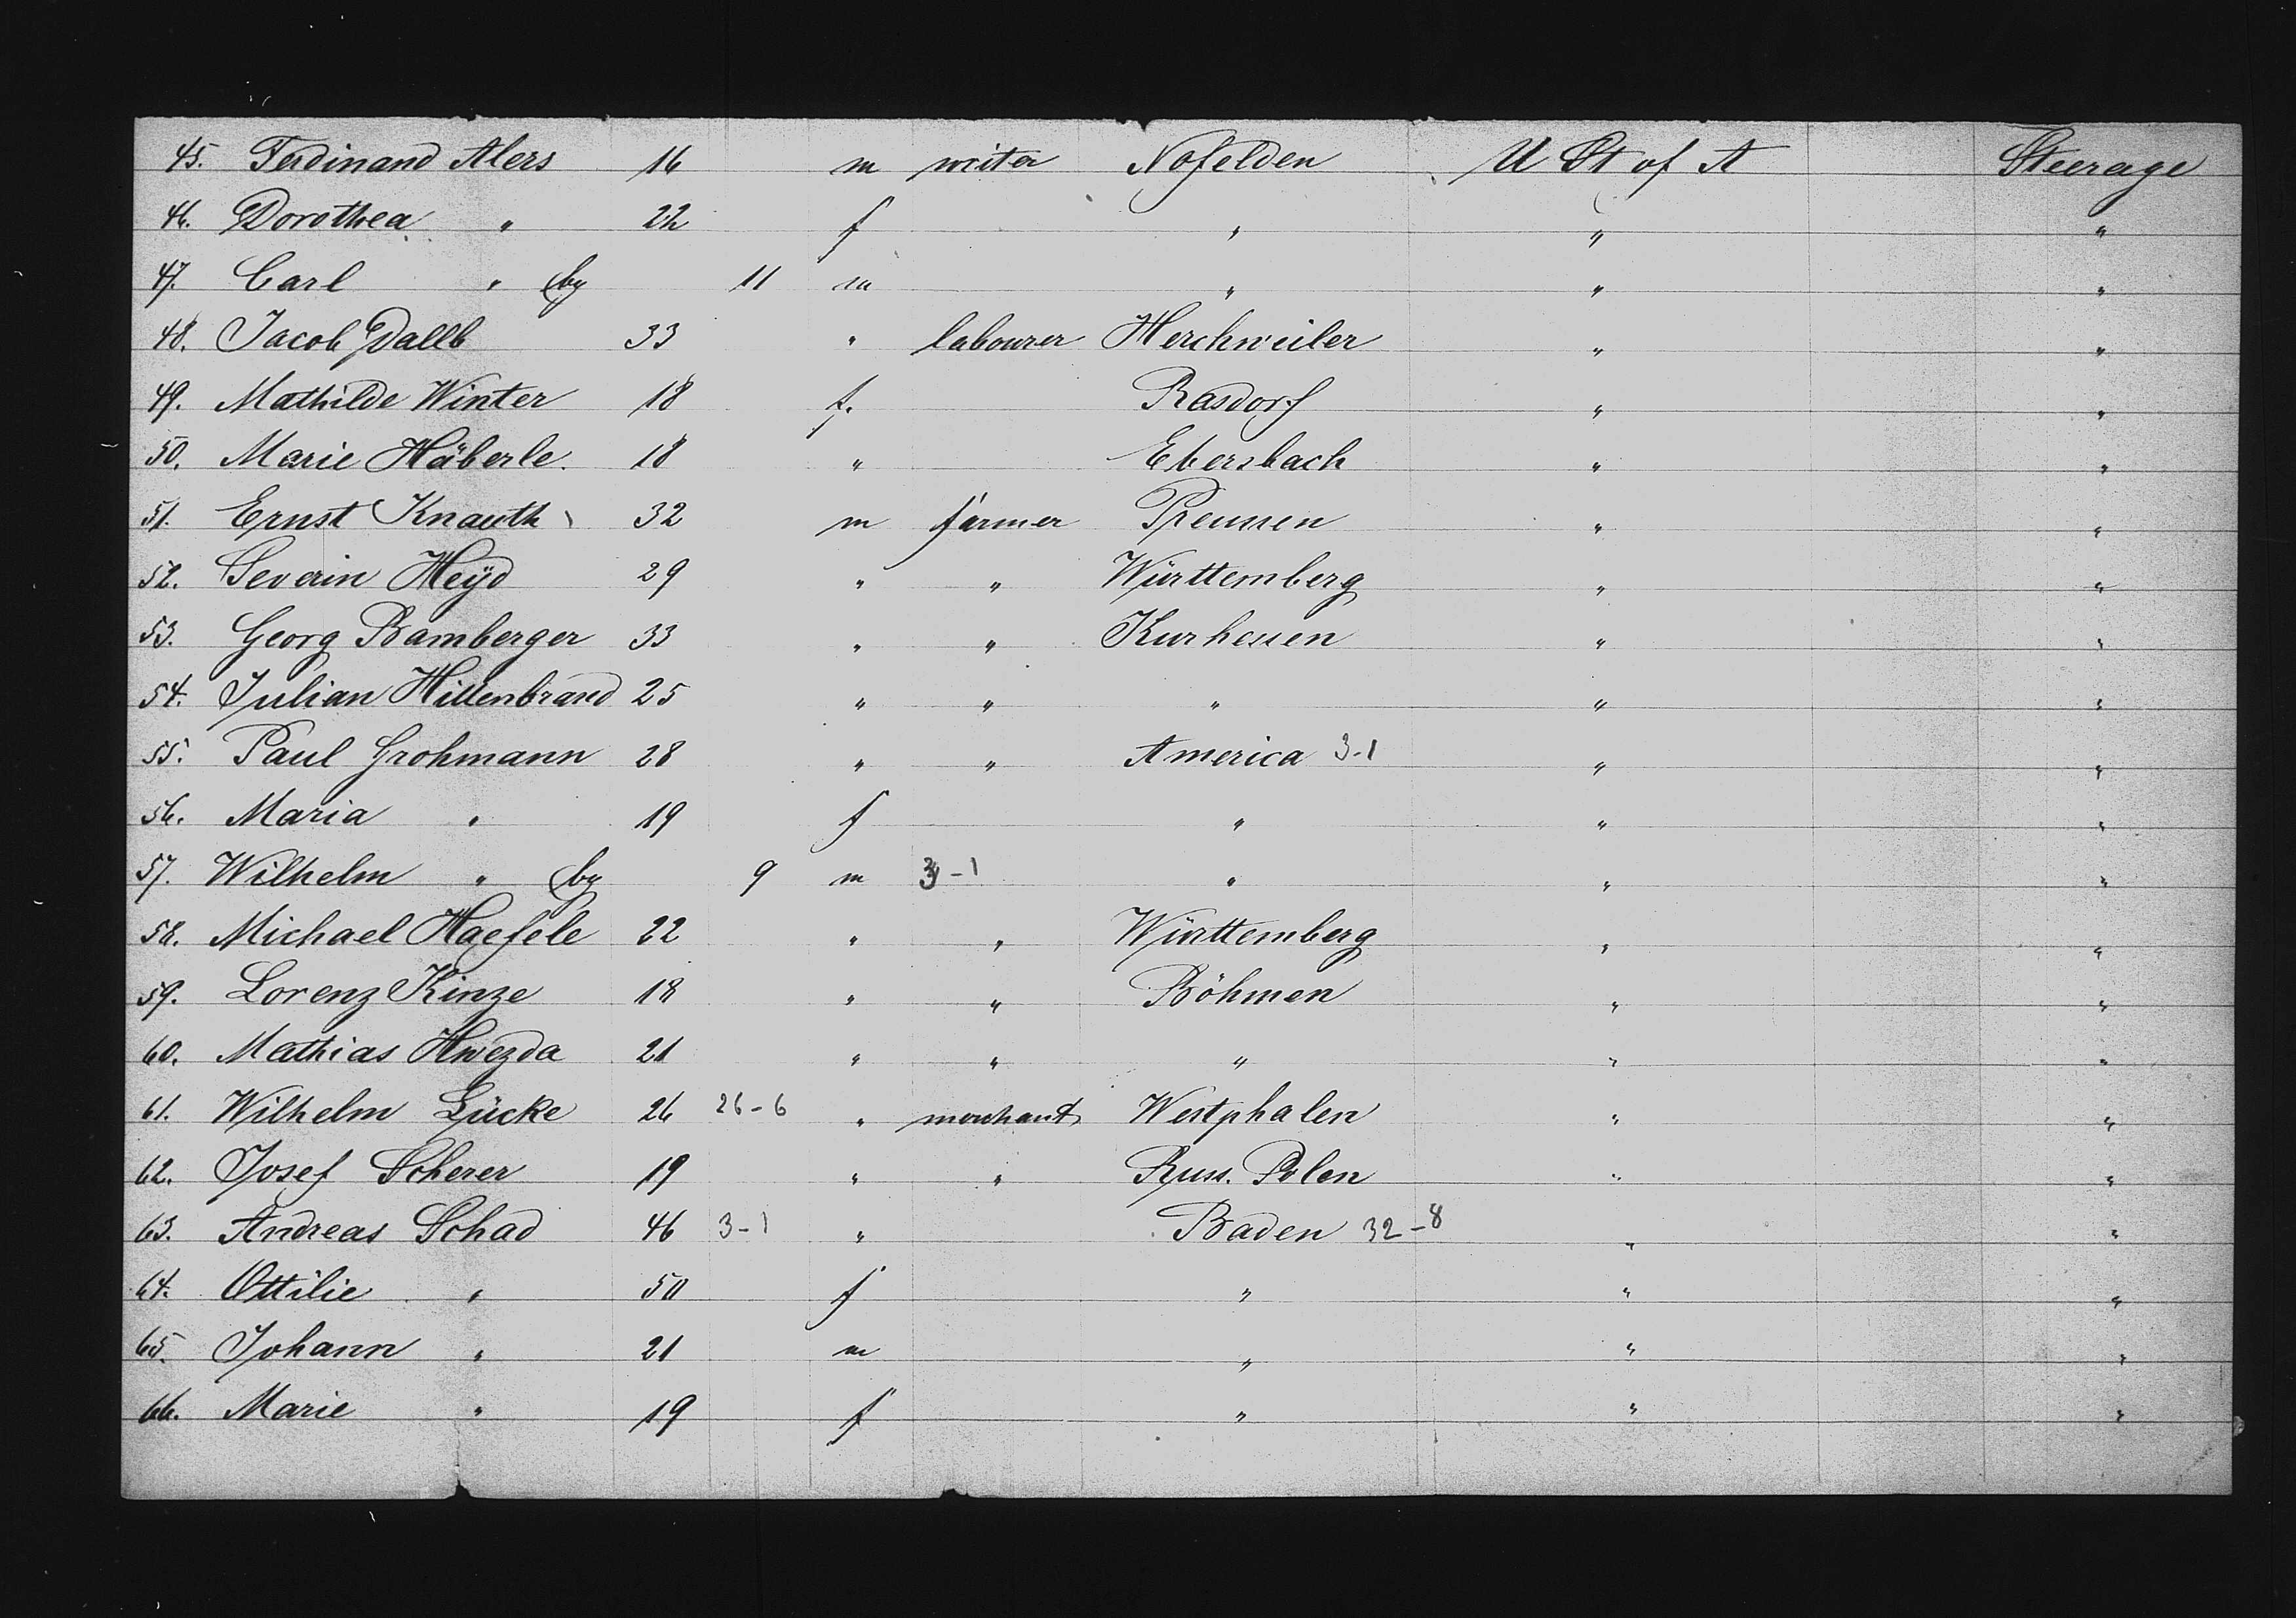 45. Ferdinand Alers 16 m writer Nofelden U St of A Steerage
46. Dorothea " 22 f " " "
47. Carl " by 11 m " " "
48. Jacob Dallb 33 " labourer Herchweiler " "
49. Mathilde Winter 18 f. Rasdorf " "
50. Marie Häberle. 18 " Ebersbach " "
51. Ernst Knauth 32 m farmer Preussen " "
52. Severin Heÿd 29 " " Württemberg " "
53. Georg Bamberger 33 " " Kurhessen " "
54. Julian Hillenbrand 25 " " " " "
55. Paul Grohmann 28 " " America 3-1 " "
56. Maria " 19 f " " "
57. Wilhelm " by 9 m 3-1 " " "
58. Michael Haefele 22 " " Württemberg " "
59. Lorenz Kinze 18 " " Böhmen " "
60. Mathias Hwezda 21 " " " " "
61. Wilhelm Lücke 26 26-6 " merchant Westphalen " "
62. Josef Scherer 19 " " Russ. Polen " "
63. Andreas Schad 46 3-1 " Baden 32-8 " "
64. Ottilie " 50 f " " "
65. Johann " 21 m " " "
66. Marie " 19 f " " "